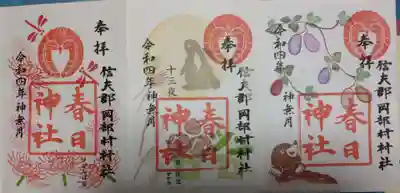 奉拝
信夫郡岡部村村社
春日神社
令和四年神無月
奉拝
信夫郡岡部村村社
春日神社
十三夜
令和四年神無月
奉拝
信夫郡岡部村村社
春日神社
令和四年神無月